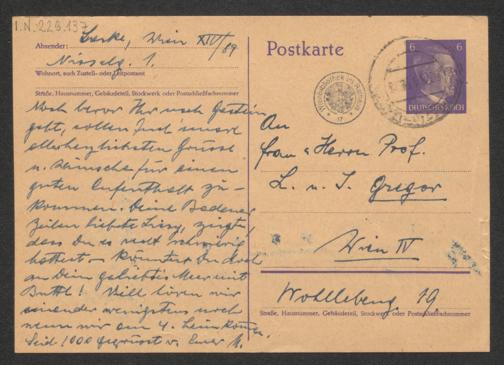 I.N. 229.137
Absender: Lerke, Wien XIV/89
Nisselg. 1.
Wohnort, auch Zustell- oder Leitpostamt
Straße, Hausnummer, Gebäudeteil, Stockwerk oder Postschließfachnummer
Noch bevor Ihr nach Gastein
geht, sollen Euch unsere
allerherzlichsten Grüsse
u. Wünsche für einen
guten Aufenthalt zu-
kommen. Deine Badener
Zeilen liebste Lissy, zeigt,
dass Du es recht
hattest - konntest Du doch
an Dein geliebtes Meer mit
! Vielleicht hören wir
einander wenigstens noch
wenn wir am 4. heimkommen.
Seid 1000 gegrüsst v. Eurer
Postkarte
6 6
DEUTSCHES REICH
An
Frau u. Herrn Prof.
L. u. J. Gregor
Wien IV
Wohllebeng. 19
Straße, Hausnummer, Gebäudeteil, Stockwerk oder Postschließfachnummer